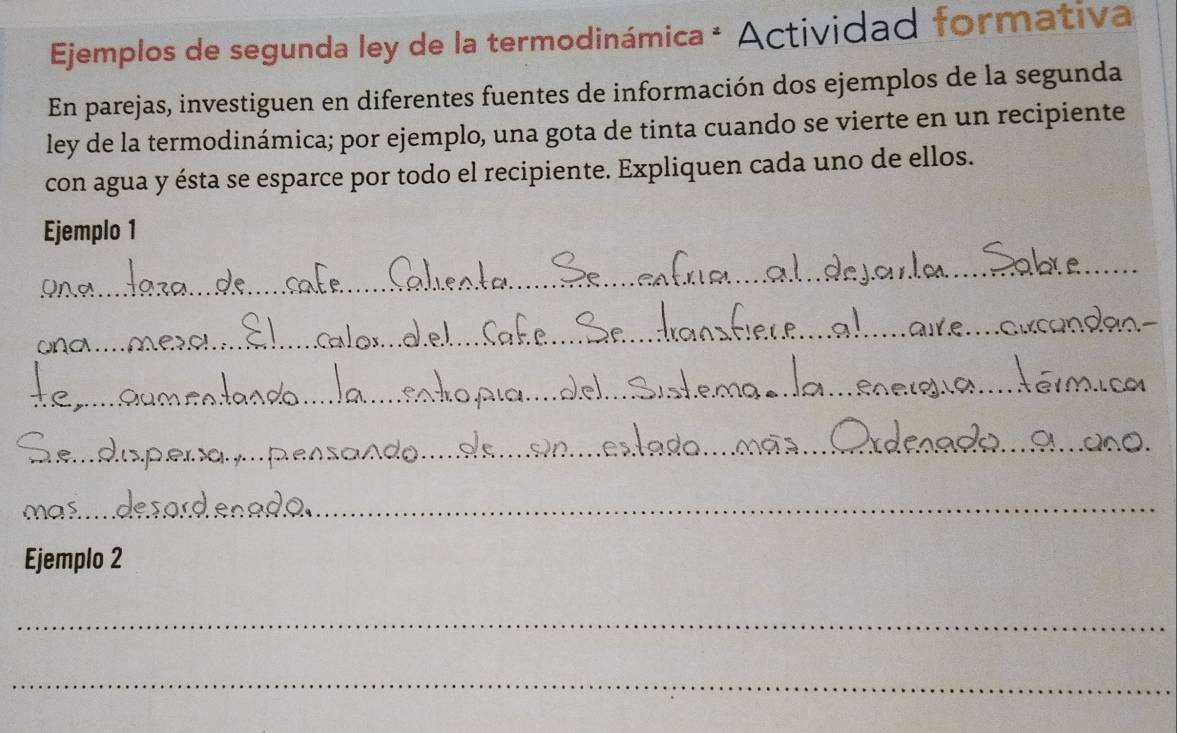 Ejemplos de segunda ley de la termodinámica * Actividad formativa
En parejas, investiguen en diferentes fuentes de información dos ejemplos de la segunda
ley de la termodinámica; por ejemplo, una gota de tinta cuando se vierte en un recipiente
con agua y ésta se esparce por todo el recipiente. Expliquen cada uno de ellos.
Ejemplo 1
una taza de cafe Calienta Se enfria al dejarla Sobre
una mesa. El calor del Cafe Se transfiere al aire circundan-
te, aumentando la entropia del Sistema. la energia térmica
Se dispersa, pensando de un estado más Ordenado a uno.
mas desordenado.
Ejemplo 2